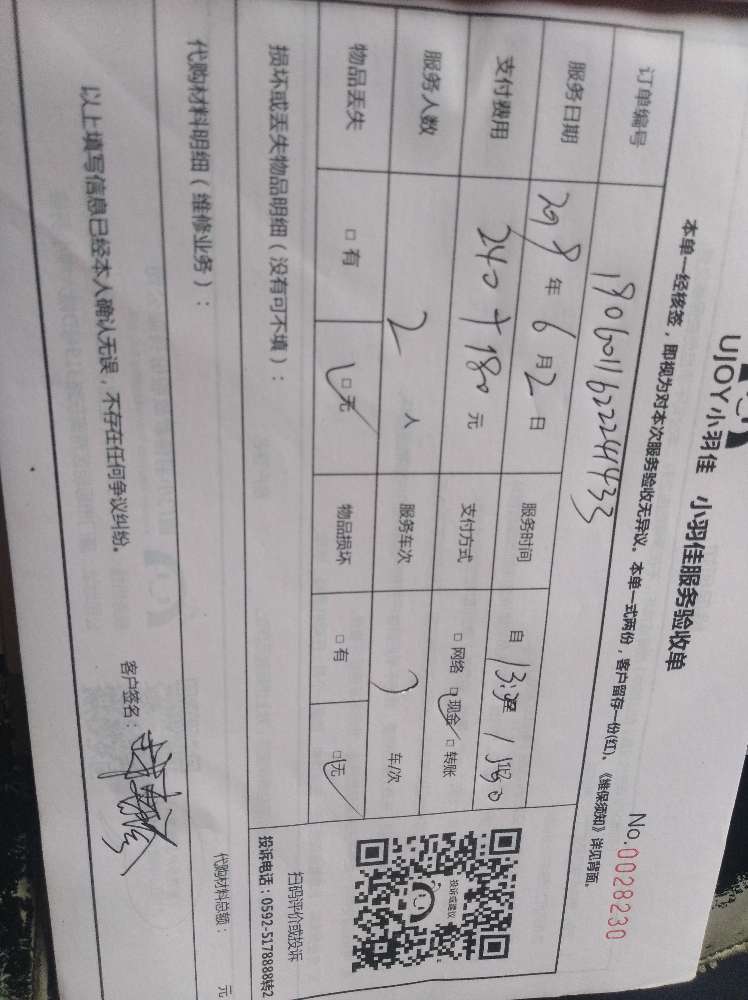 UJOY小羽佳 小羽佳服务验收单
No.0028230
本单一经核签，即视为对本次服务验收无异议。本单一式两份，客户留存一份(红)。《维保须知》详见背面。
订单编号
服务日期 2018年6月2日 服务时间 自
支付费用 240+180元 支付方式 □网络 □现金 □转账
服务人数 2人 服务车次 车/次
物品丢失 □有 □无 物品损坏 □有 □无
损坏或丢失物品明细（没有可不填）：
投诉或建议
扫码评价或投诉
投诉电话：0592-5178888转2
代购材料明细（维修业务）：
代购材料总额： 元
以上填写信息已经本人确认无误，不存在任何争议纠纷。
客户签名：